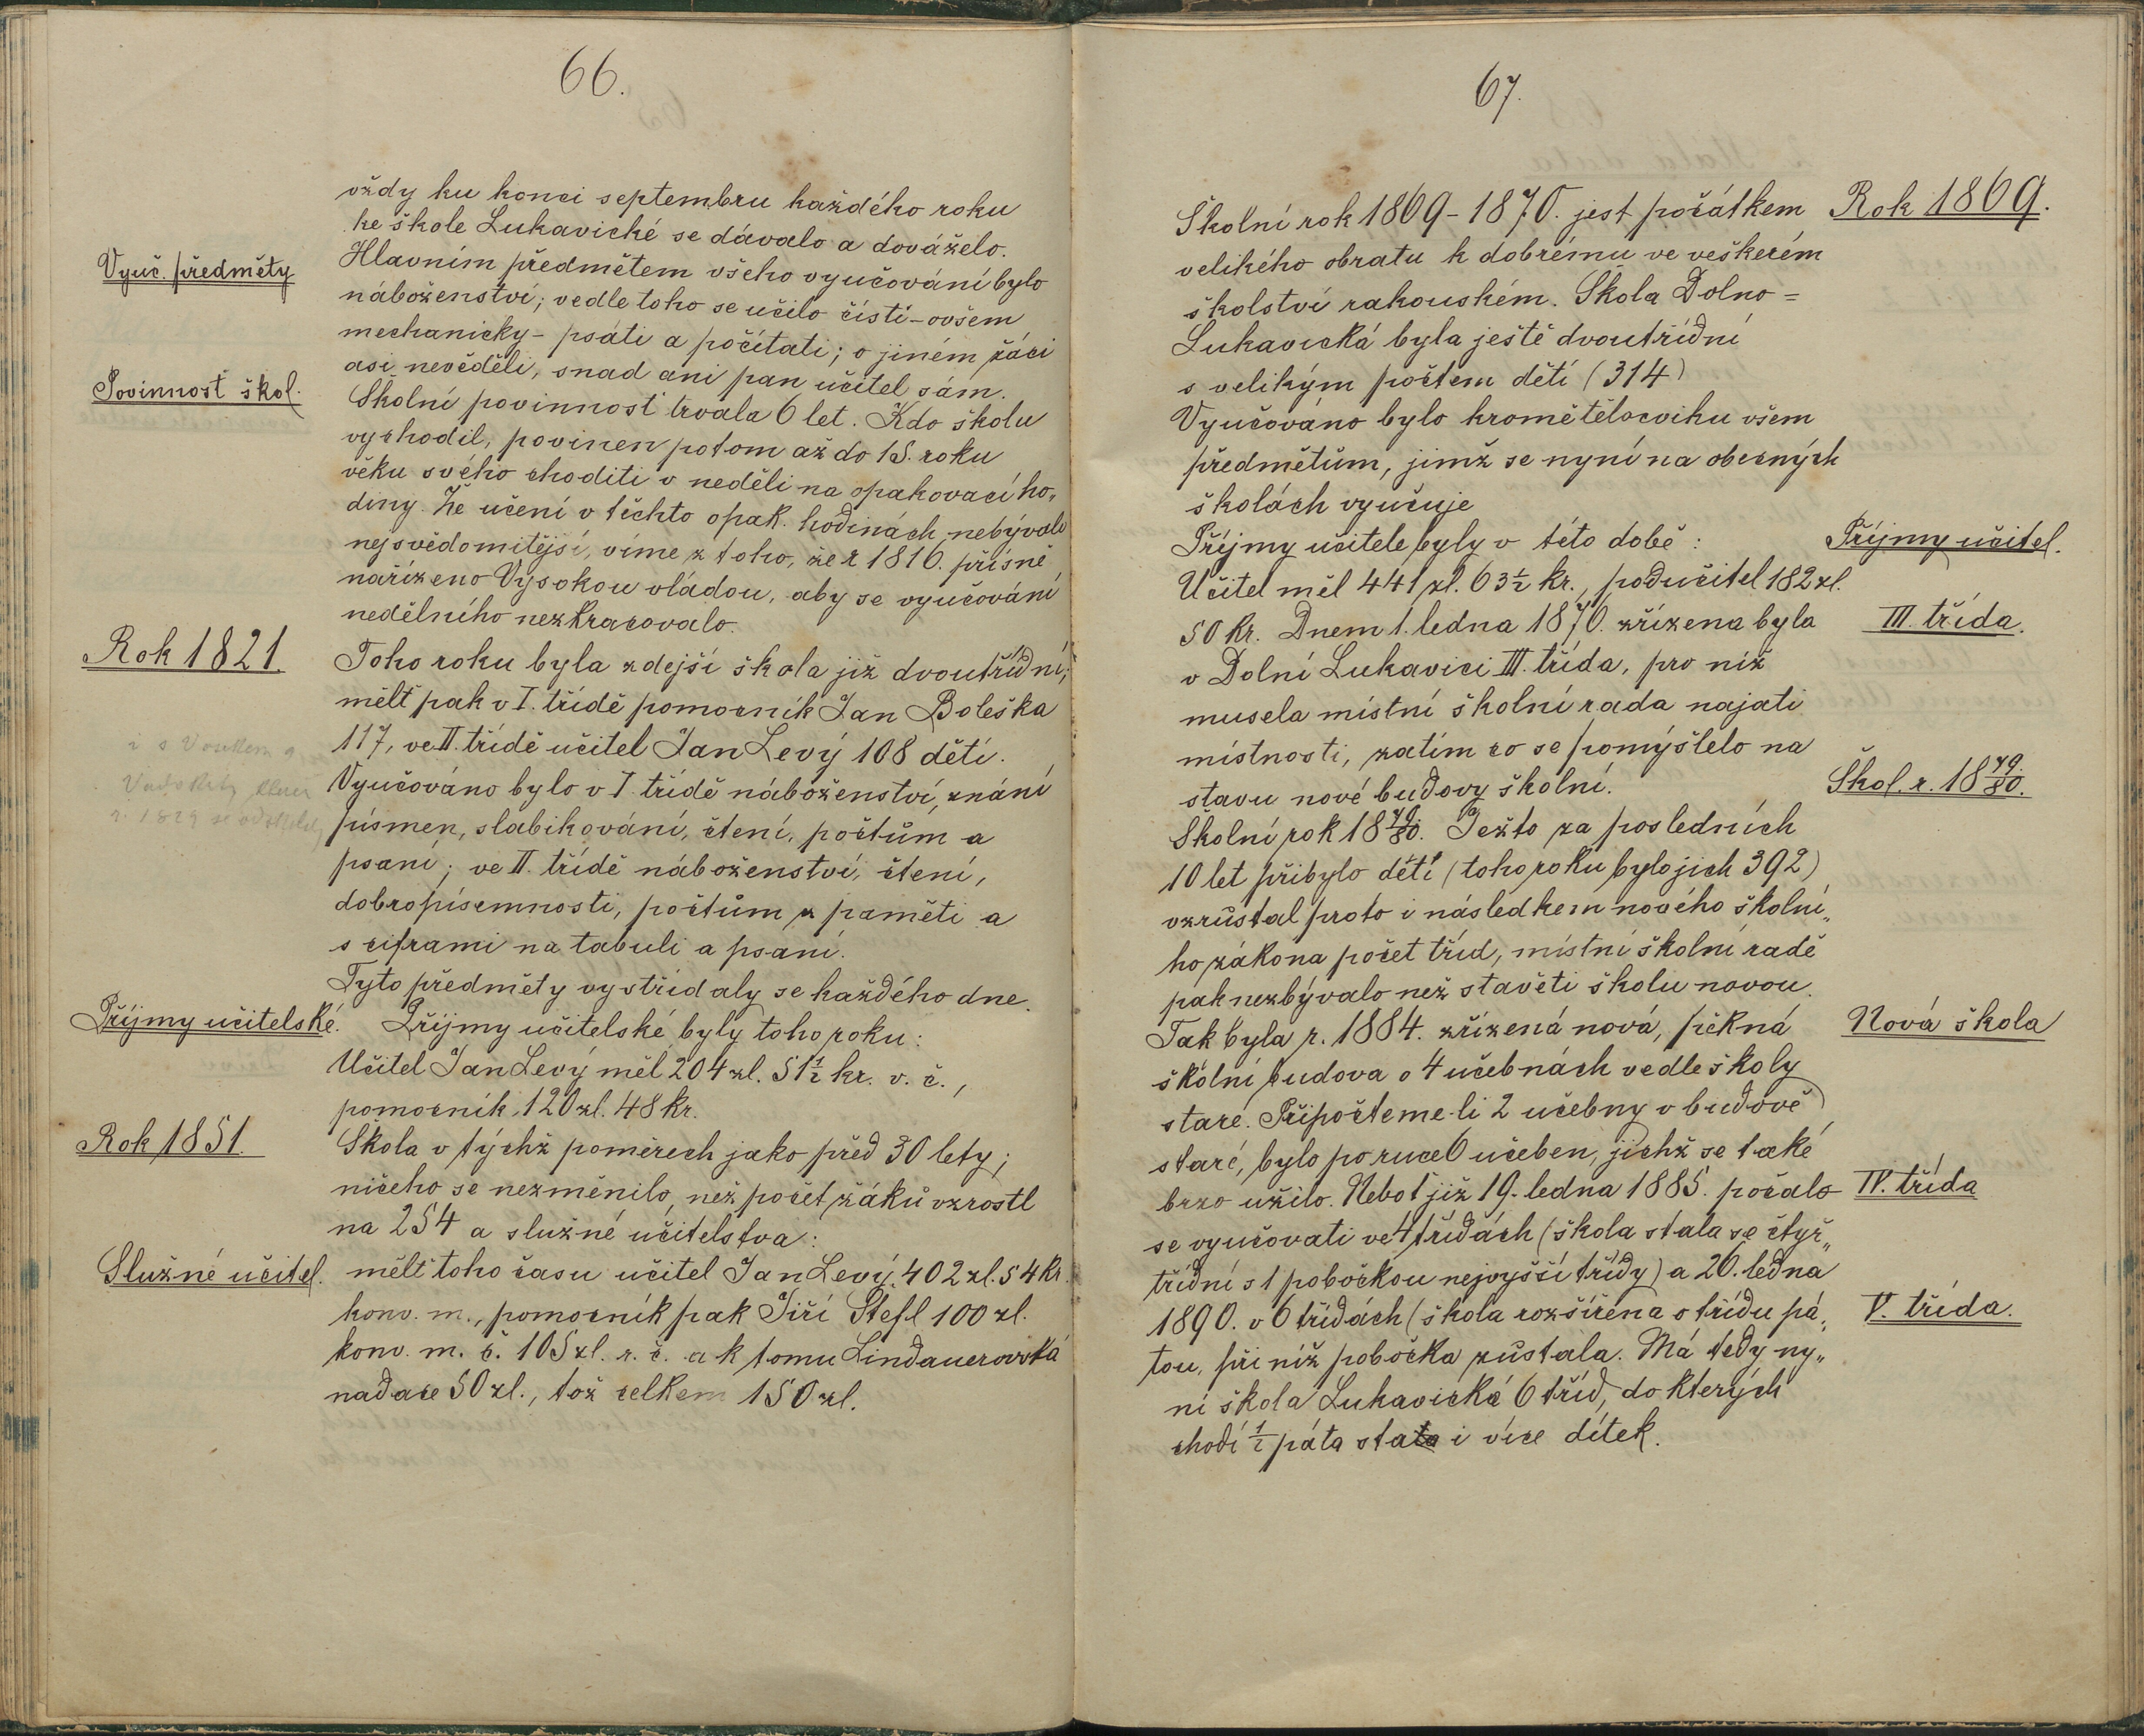 66.
vždy ku konci septembru každého roku
ke škole Lukavické se dávalo a dováželo.
Vyuč. předměty
Hlavním předmětem všeho vyučování bylo
náboženství; vedle toho se učilo čísti - ovšem
mechanicky - psáti a počítati; o jiném žáci
asi nevěděli, snad ani pan učitel sám.
Povinnost škol.
Školní povinnost trvala 6 let. Kdo školu
vychodil, povinen potom až do 15. roku
věku svého choditi v neděli na opakovací ho„
diny. Že učení v těchto opak. hodinách nebývalo
nejsvědomitější, víme z toho, že r 1816. přísně
nařízeno Vysokou vládou, aby se vyučování
nedělního nezkracovalo.
Rok 1821.
Toho roku byla zdejší škola již dvoutřídní;
mělť pak v I. třídě pomocník Jan Boleška
117, ve II. třídě učitel Jan Levý 108 dětí.
Vyučováno bylo v I. třídě náboženství, znání
písmen, slabikování, čtení, počtům a
psaní; ve II. třídě náboženství, čtení,
dobropísemnosti, počtům z paměti a
s ciframi na tabuli a psaní.
Tyto předměty vystřídaly se každého dne.
Příjmy učitelské.
Příjmy učitelské byly toho roku:
Učitel Jan Levý měl 204 zl. 51 1/2 kr. v. č.,
pomocník 120 zl. 48 kr.
Rok 1851.
Škola v týchž poměrech jako před 30 lety;
ničeho se nezměnilo, než počet žáků vzrostl
na 254 a služné učitelstva:
Služné učitel.
mělť toho času učitel Jan Levý 402 zl. 54 kr.
konv. m., pomocník pak Jiří Štefl 100 zl.
konv. m. č. 105 zl. r. č. a k tomu Lindauerovská
nadace 50 zl., tož celkem 150 zl.
67.
Rok 1869.
Školní rok 1869-1870. jest počátkem
velikého obratu k dobrému ve veškerém
školství rakouském. Škola Dolno=
Lukavická byla ještě dvoutřídní
s velikým počtem dětí (314)
Vyučováno bylo kromě tělocviku všem
předmětům, jimž se nyní na obecných
školách vyučuje
Příjmy učitel.
Příjmy učitele byly v této době:
Učitel měl 441 zl. 63 1/2 kr., podučitel 182 zl.
III. třída.
50 kr. Dnem 1. ledna 1870. zřízena byla
v Dolní Lukavici III. třída, pro niž
musela místní školní rada najati
místnosti, zatím co se pomýšlelo na
stavu nové budovy školní.
Škol. r. 18 79/80.
Školní rok 18 79/80. Ježto za posledních
10 let přibylo dětí (toho roku bylo jich 392)
vzrůstal proto i následkem nového školní„
ho zákona počet tříd, místní školní radě
pak nezbývalo než stavěti školu novou.
Nová škola
Tak byla r. 1884. zřízená nová, pěkná
školní budova o 4 učebnách vedle školy
staré. Připočteme-li 2 učebny v budově
staré, bylo po ruce 6 učeben, jichž se také
IV. třída
brzo užilo. Neboť již 19. ledna 1885. počalo
se vyučovati ve 4 třídách (škola stala se čtyř„
třídní s 1 pobočkou nejvyšší třídy) a 26. ledna
V. třída.
1890. v 6 třídách (škola rozšířena o třídu pá„
tou, při níž pobočka zůstala. Má tedy ny„
ní škola Lukavická 6 tříd, do kterých
chodí 1/2 páta sta i více dítek.